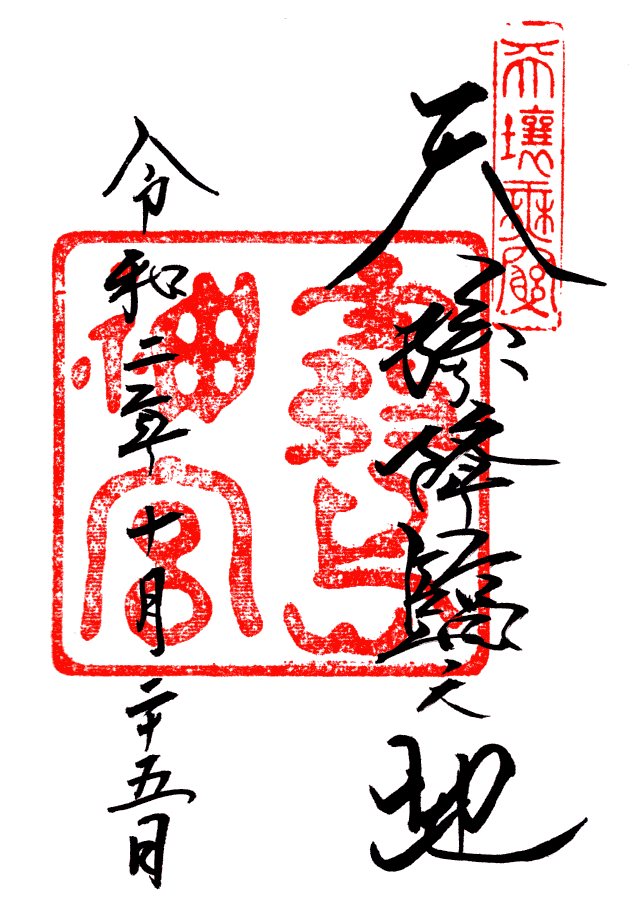 天壤無窮
天孫降臨之地
霧島神宮
令和二年十月二十五日